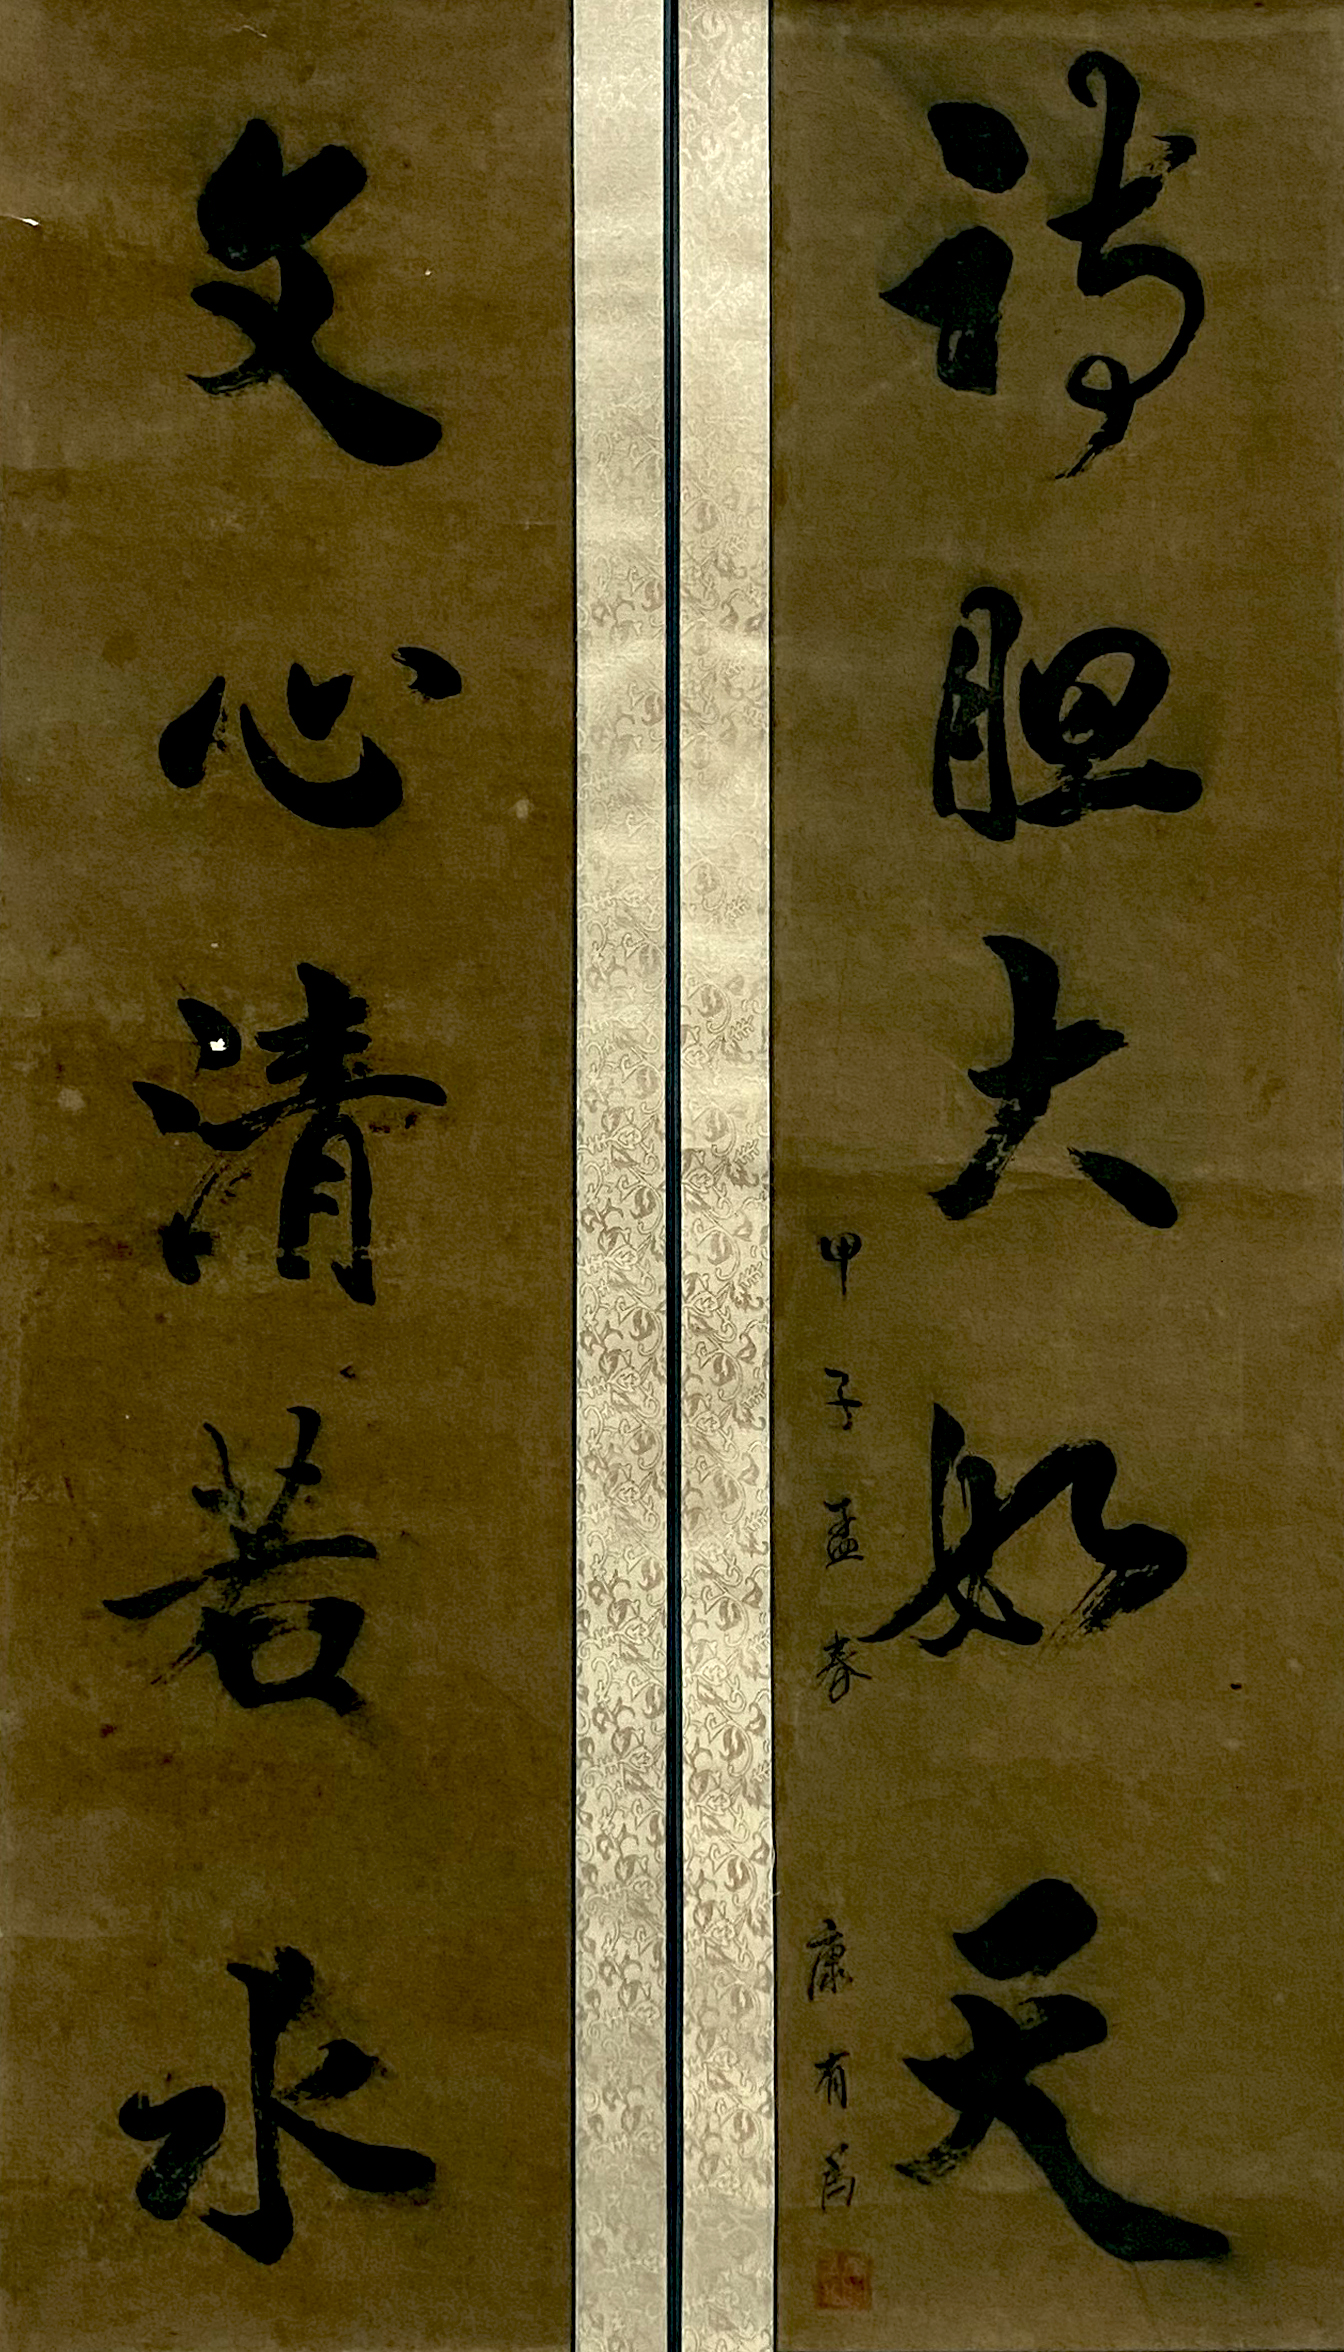 詩胆大如天
甲子孟春
康有為
文心清若水